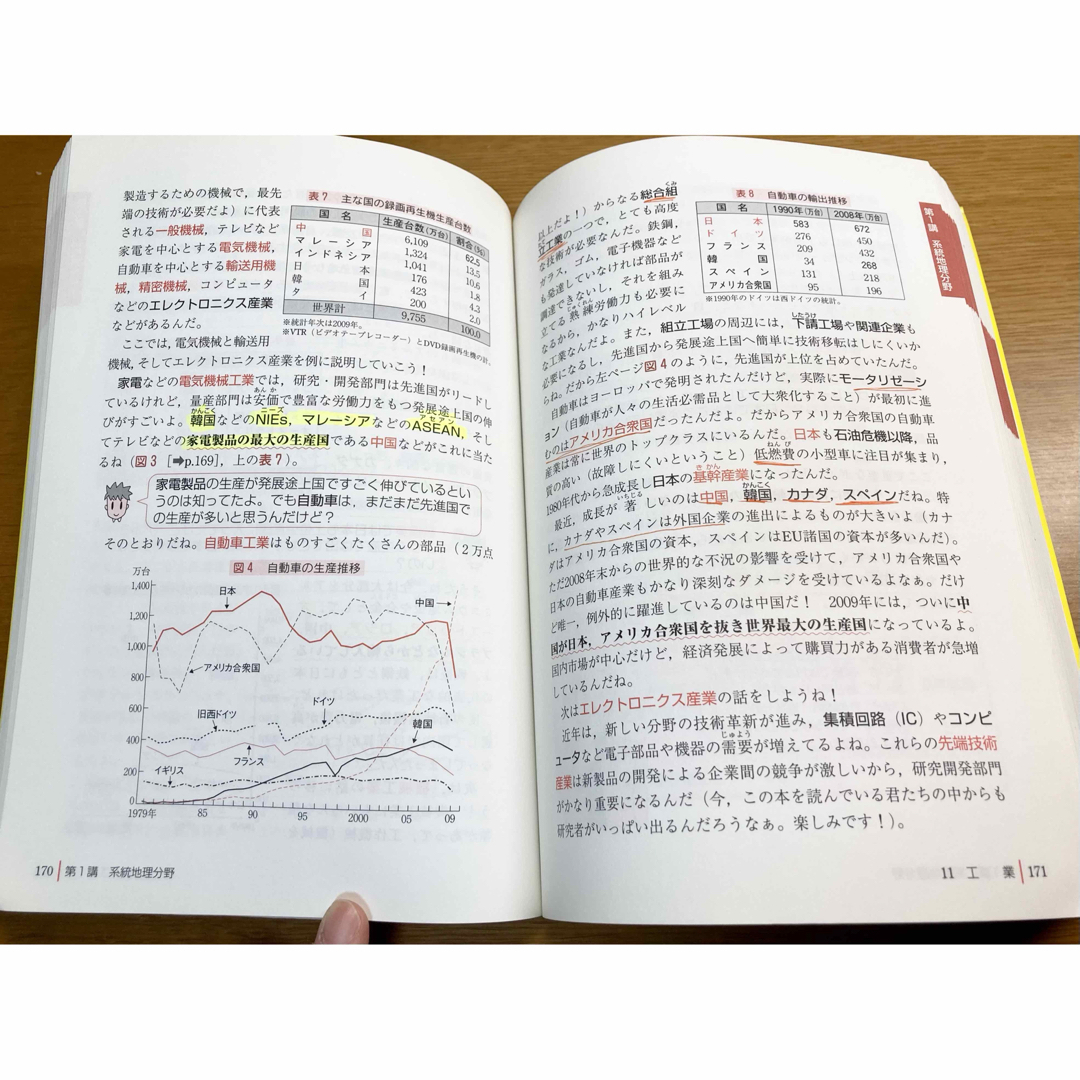 製造するための機械で，最先
端の技術が必要だよ）に代表
される一般機械，テレビなど
家電を中心とする電気機械，
自動車を中心とする輸送用機
械，精密機械，コンピュータ
などのエレクトロニクス産業
などがあるんだ。
ここでは，電気機械と輸送用
機械，そしてエレクトロニクス産業を例に説明していこう！
表7 主な国の録画再生機生産台数
国 名 生産台数(万台) 割合(%)
中 国 6,109 62.5
マレーシア 1,324 13.5
インドネシア 1,041 10.6
日 本 176 1.8
韓 国 423 4.3
タ イ 200 2.0
世界計 9,755 100.0
※統計年次は2009年。
※VTR（ビデオテープレコーダー）とDVD録画再生機の計。
家電などの電気機械工業では，研究・開発部門は先進国がリードし
あんか
ているけれど，量産部門は安価で豊富な労働力をもつ発展途上国の伸
かんこく ニーズ アセアン
びがすごいよ。韓国などのNIEs，マレーシアなどのASEAN，そし
てテレビなどの家電製品の最大の生産国である中国などがこれに当た
るね（図3［➡p.169］，上の表7）。
家電製品の生産が発展途上国ですごく伸びているとい
うのは知ってたよ。でも自動車は，まだまだ先進国で
の生産が多いと思うんだけど？
そのとおりだね。自動車工業はものすごくたくさんの部品（2万点
図4 自動車の生産推移
万台
1,400
1,200
1,000
800
600
400
200
0
日本
中国
アメリカ合衆国
旧西ドイツ
ドイツ
韓国
フランス
イギリス
1979年 85 90 95 2000 05 09
170 第1講 系統地理分野
くみ
以上だよ！）からなる総合組
立工業の一つで，とても高度
な技術が必要なんだ。鉄鋼，
ガラス，ゴム，電子機器など
も発達していなければ部品が
調達できないし，それを組み
じゅくれん
立てる熟練労働力も必要に
なるから，かなりハイレベル
表8 自動車の輸出推移
国 名 1990年(万台) 2008年(万台)
日 本 583 672
ドイツ 276 450
フランス 209 432
韓 国 34 268
スペイン 131 218
アメリカ合衆国 95 196
※1990年のドイツは西ドイツの統計。
したうけ
な工業なんだよ。また，組立工場の周辺には，下請工場や関連企業も
必要になるし，先進国から発展途上国へ簡単に技術移転はしにくいか
らね。だから左ページ図4のように，先進国が上位を占めていたんだ。
自動車はヨーロッパで発明されたんだけど，実際にモータリゼーシ
ョン（自動車が人々の生活必需品として大衆化すること）が最初に進
むのはアメリカ合衆国だったんだよ。だからアメリカ合衆国の自動車
産業は常に世界のトップクラスにいるんだ。日本も石油危機以降，品
ねんぴ
質の高い（故障しにくいということ）低燃費の小型車に注目が集まり，
きかん
1980年代から急成長し日本の基幹産業になったんだ。
いちじる かんこく
最近，成長が著しいのは中国，韓国，カナダ，スペインだね。特
に，カナダやスペインは外国企業の進出によるものが大きいよ（カナ
ダはアメリカ合衆国の資本，スペインはEU諸国の資本が多いんだ）。
ただ2008年末からの世界的な不況の影響を受けて，アメリカ合衆国や
日本の自動車産業もかなり深刻なダメージを受けているよなぁ。だけ
ど唯一，例外的に躍進しているのは中国だ！ 2009年には，ついに中
国が日本，アメリカ合衆国を抜き世界最大の生産国になっているよ。
国内市場が中心だけど，経済発展によって購買力がある消費者が急増
しているんだね。
次はエレクトロニクス産業の話をしようね！
近年は，新しい分野の技術革新が進み，集積回路（IC）やコンピ
じゅよう
ュータなど電子部品や機器の需要が増えてるよね。これらの先端技術
産業は新製品の開発による企業間の競争が激しいから，研究開発部門
がかなり重要になるんだ（今，この本を読んでいる君たちの中からも
研究者がいっぱい出るんだろうなぁ。楽しみです！）。
第1講 系統地理分野
11 工 業 171